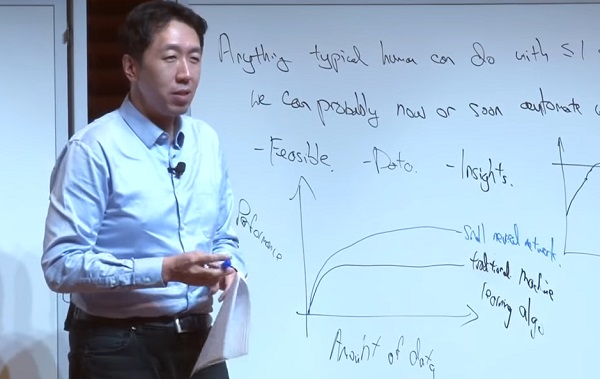 Anything typical human can do with <1
we can probably now or soon automate
- Feasible. - Data. - Insights.
Performance
small neural network.
traditional machine
learning algo
Amount of data